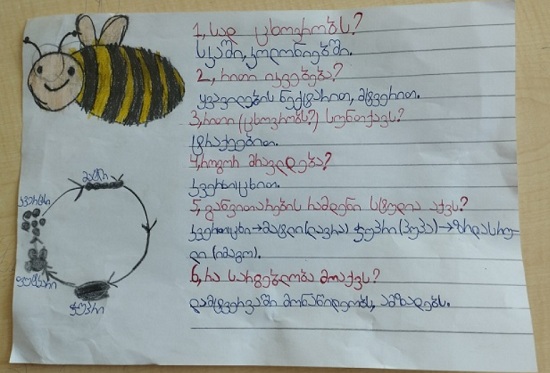 1, სად ცხოვრობს?
სკაში, კოლონიებში.
2, რითი იკვებება?
ყვავილების ნექტარით, მტვერით.
3, რითი (ცხოვრობს?) სუნთქავს?
ტრაქეებით.
4, როგორ მრავლდება?
კვერცხებით.
5, განვითარების რამდენი სტადია აქვს?
კვერცხი→მატლი (ლავრა) ჭუპრი (პუპა)→ზრდასრუ-
ლი (იმაგო).
6, რა სარგებლობა მოაქვს?
დამტვერვაში მონაწილეობს, ამზადებს.
მატლ
კვერცხი
ჭუპრი